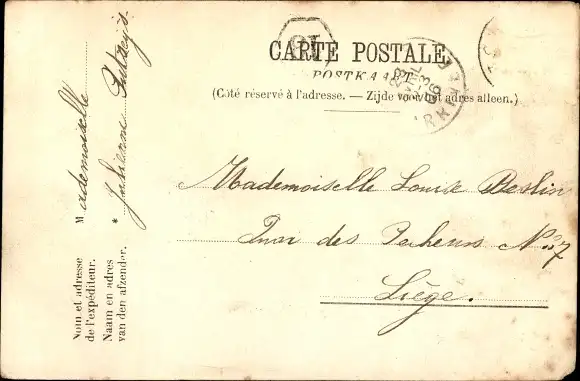 CARTE POSTALE
POSTKAART
(Côté réservé à l'adresse. — Zijde voor het adres alleen.)
Mademoiselle Louise
des N° 37
Liège.
Mademoiselle
Julienne
Nom et adresse
de l'expéditeur.
Naam en adres
van den afzender.